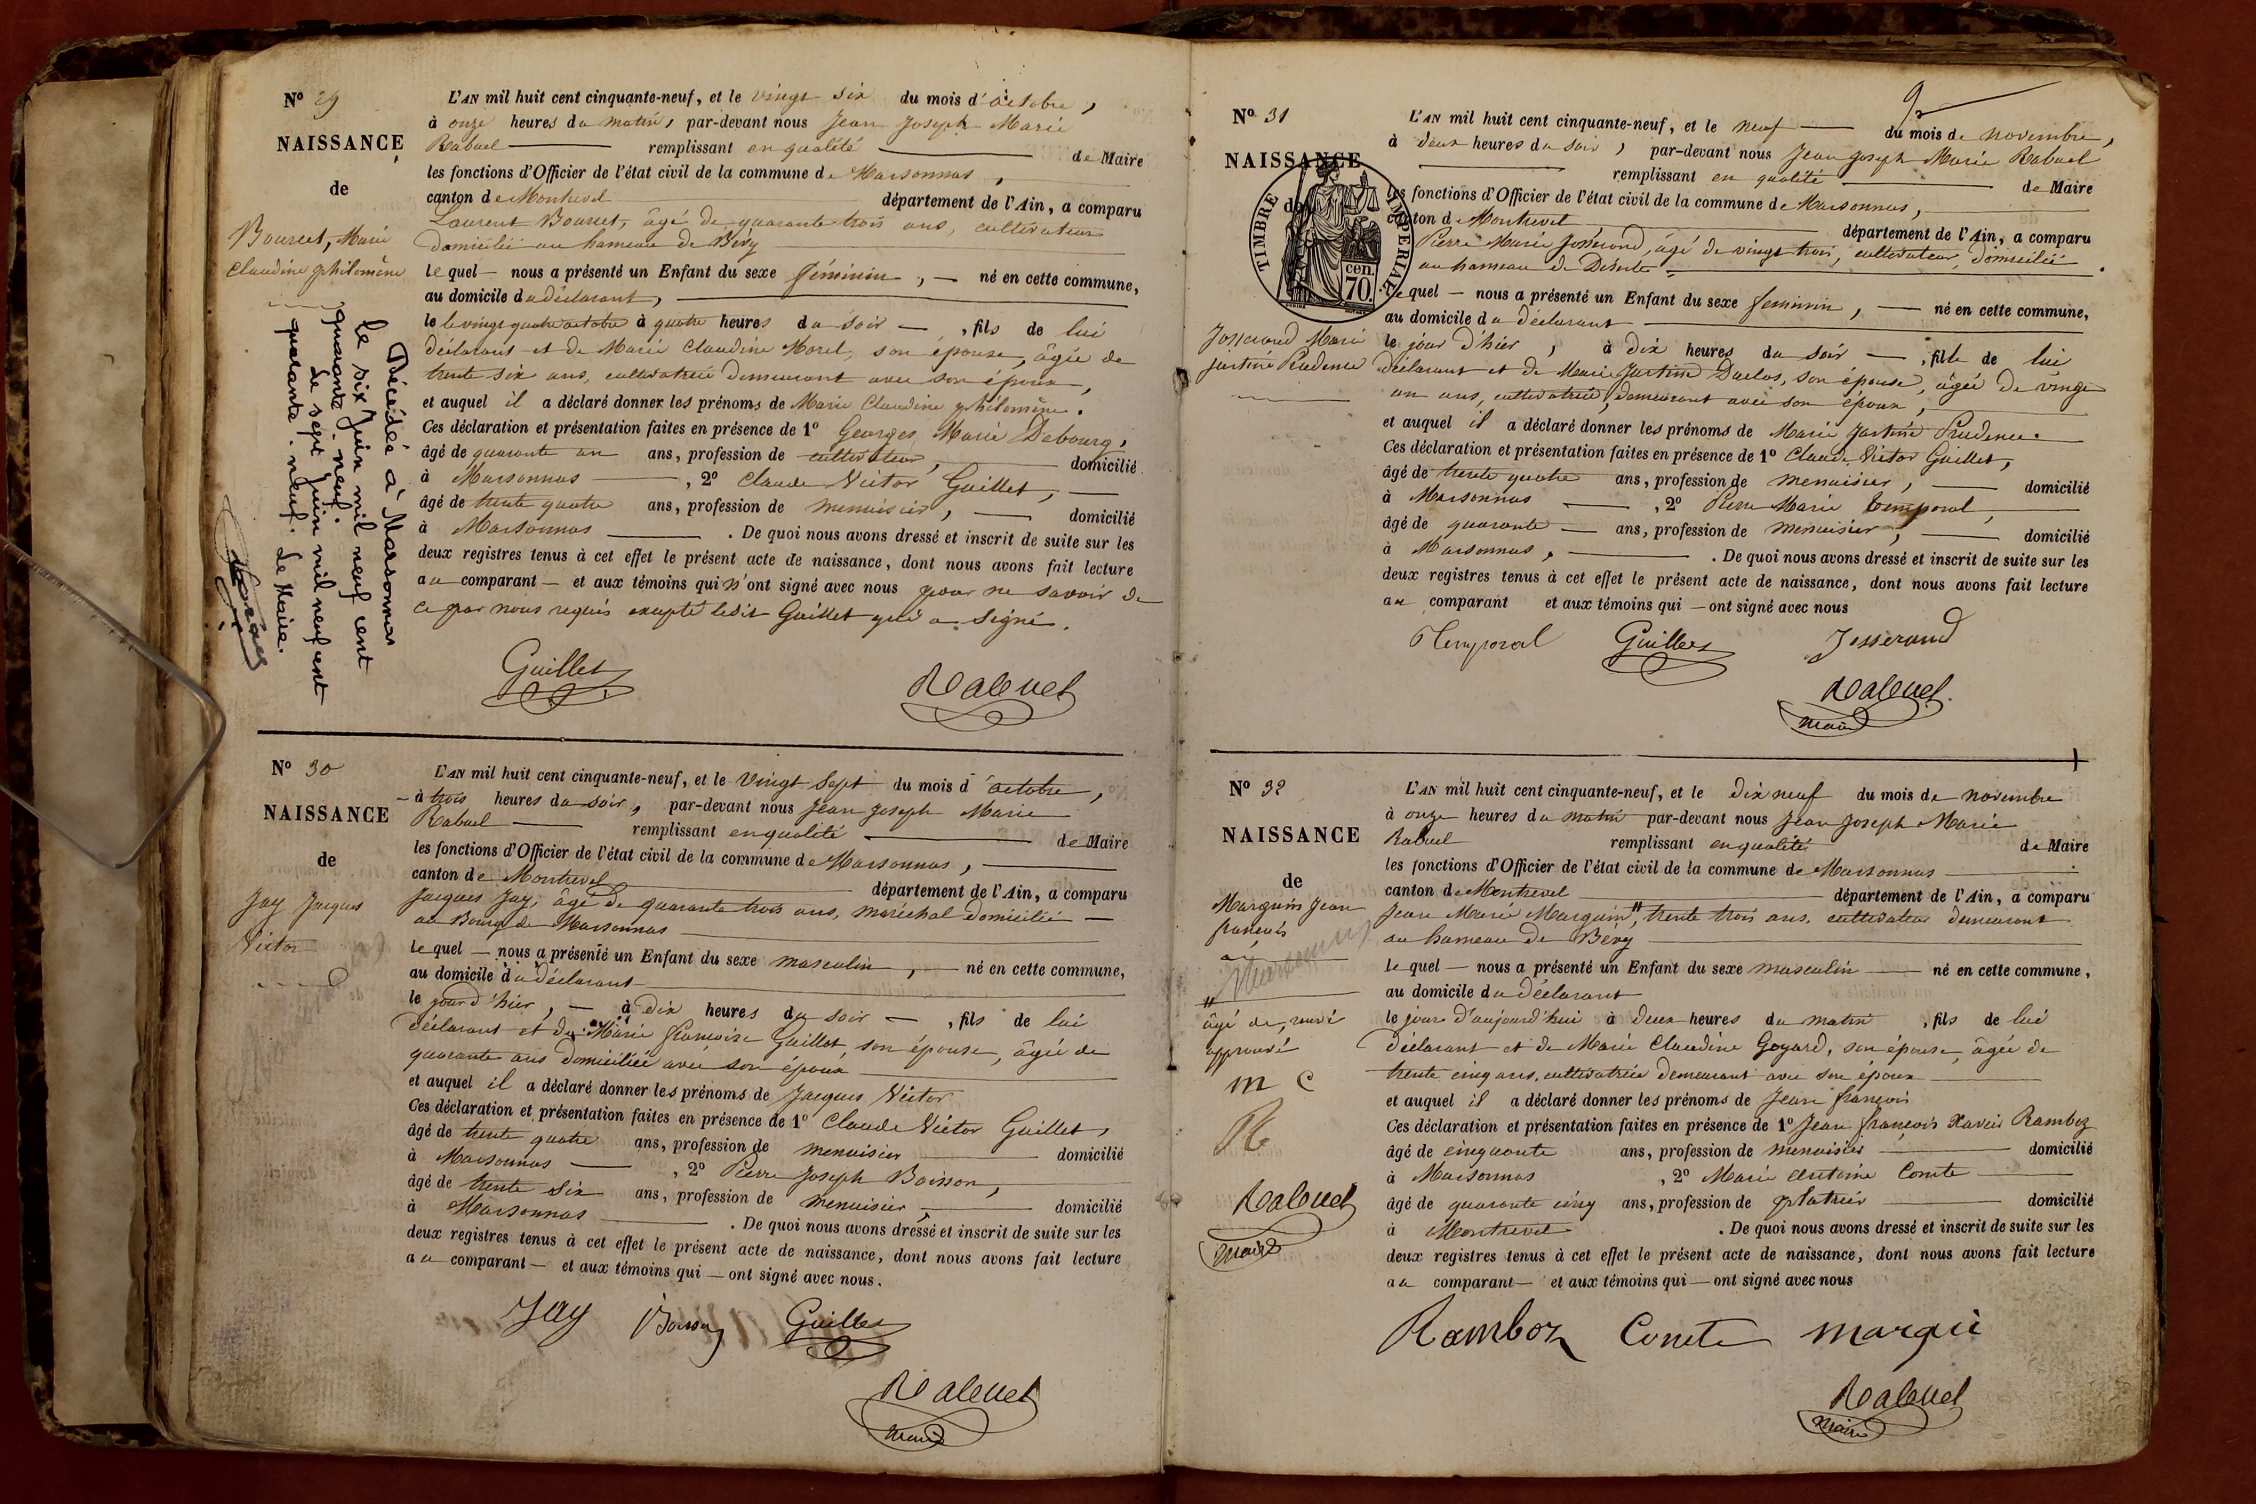 N° 29
NAISSANCE
de
Bourcet, Marie
Claudine philomène
Décédée à Marsonnas
le six Juin mil neuf cent
quarante-neuf.
Le sept Juin mil neuf cent
quarante-neuf. Le Maire.
L'AN mil huit cent cinquante-neuf, et le vingt six du mois d'octobre,
à onze heures du matin, par-devant nous Jean Joseph Marie
Rabuel remplissant en qualité de Maire
les fonctions d'Officier de l'état civil de la commune de Marsonnas,
canton de Montrevel département de l'Ain, a comparu
Laurent Bourcet, âgé de quarante trois ans, cultivateur
domicilié au hameau de Bévy
lequel nous a présenté un Enfant du sexe féminin, né en cette commune,
au domicile du déclarant,
le le vingt quatre octobre à quatre heures du soir, fils de lui
déclarant et de Marie Claudine Morel, son épouse, âgée de
trente six ans, cultivatrice demeurant avec son époux,
et auquel il a déclaré donner les prénoms de Marie Claudine philomène.
Ces déclaration et présentation faites en présence de 1° Georges Marie Debourg,
âgé de quarante un ans, profession de cultivateur, domicilié
à Marsonnas, 2° Claude Victor Guillet,
âgé de trente quatre ans, profession de menuisier, domicilié
à Marsonnas. De quoi nous avons dressé et inscrit de suite sur les
deux registres tenus à cet effet le présent acte de naissance, dont nous avons fait lecture
au comparant et aux témoins qui n'ont signé avec nous pour ne savoir de
ce par nous requis excepté ledit Guillet qui a signé.
Guillet Rabuel
N° 30
NAISSANCE
de
Jay Jacques
Victor
L'AN mil huit cent cinquante-neuf, et le vingt sept du mois d'octobre,
à trois heures du soir, par-devant nous Jean Joseph Marie
Rabuel remplissant en qualité de Maire
les fonctions d'Officier de l'état civil de la commune de Marsonnas,
canton de Montrevel département de l'Ain, a comparu
Jacques Jay, âgé de quarante trois ans, maréchal domicilié
au Bourg de Marsonnas
lequel nous a présenté un Enfant du sexe masculin, né en cette commune,
au domicile du déclarant
le jour d'hier, à dix heures du soir, fils de lui
déclarant et de Marie françoise Guillot, son épouse, âgée de
quarante ans domiciliée avec son époux
et auquel il a déclaré donner les prénoms de Jacques Victor
Ces déclaration et présentation faites en présence de 1° Claude Victor Guillet,
âgé de trente quatre ans, profession de menuisier domicilié
à Marsonnas, 2° Pierre Joseph Boisson,
âgé de trente six ans, profession de menuisier, domicilié
à Marsonnas. De quoi nous avons dressé et inscrit de suite sur les
deux registres tenus à cet effet le présent acte de naissance, dont nous avons fait lecture
au comparant et aux témoins qui ont signé avec nous.
Jay Boisson Guillet
Rabuel
maire
9
N° 31
NAISSANCE
de
TIMBRE IMPERIAL
70 cen.
Josserand Marie
Justine Prudence
L'AN mil huit cent cinquante-neuf, et le neuf du mois de novembre,
à deux heures du soir, par-devant nous Jean Joseph Marie Rabuel
remplissant en qualité de Maire
les fonctions d'Officier de l'état civil de la commune de Marsonnas,
canton de Montrevel département de l'Ain, a comparu
Pierre Marie Josserand, âgé de vingt trois, cultivateur, domicilié
au hameau de
lequel nous a présenté un Enfant du sexe feminin, né en cette commune,
au domicile du déclarant
le jour d'hier, à dix heures du soir, fille de lui
déclarant et de Marie Justine Duclos, son épouse, âgée de vingt
un ans, cultivatrice, demeurant avec son époux,
et auquel il a déclaré donner les prénoms de Marie Justine Prudence.
Ces déclaration et présentation faites en présence de 1° Claude Victor Guillet,
âgé de trente quatre ans, profession de menuisier, domicilié
à Marsonnas, 2° Pierre Marie Temporal,
âgé de quarante ans, profession de menuisier, domicilié
à Marsonnas,. De quoi nous avons dressé et inscrit de suite sur les
deux registres tenus à cet effet le présent acte de naissance, dont nous avons fait lecture
au comparant et aux témoins qui ont signé avec nous
Temporal Guillet Josserand
Rabuel
maire
N° 32
NAISSANCE
de
Marguin Jean
françois
" âgé de, renvoi
approuvé
m C
R
Rabuel
maire
L'AN mil huit cent cinquante-neuf, et le dix neuf du mois de novembre
à onze heures du matin par-devant nous Jean Joseph Marie
Rabuel remplissant en qualité de Maire
les fonctions d'Officier de l'état civil de la commune de Marsonnas
canton de Montrevel département de l'Ain, a comparu
Jean Marie Marguin," trente trois ans, cultivateur demeurant
au hameau de Bévy
lequel nous a présenté un Enfant du sexe masculin né en cette commune,
au domicile du déclarant
le jour d'aujourd'hui à deux heures du matin, fils de lui
déclarant et de Marie Claudine Goyard, son épouse, âgée de
trente cinq ans, cultivatrice demeurant avec son époux
et auquel il a déclaré donner les prénoms de Jean françois
Ces déclaration et présentation faites en présence de 1° Jean françois Xavier Ramboz
âgé de cinquante ans, profession de menuisier domicilié
à Marsonnas, 2° Marie Antoine Comte
âgé de quarante cinq ans, profession de platrier domicilié
à Montrevel. De quoi nous avons dressé et inscrit de suite sur les
deux registres tenus à cet effet le présent acte de naissance, dont nous avons fait lecture
au comparant et aux témoins qui ont signé avec nous
Ramboz Comte Marguin
Rabuel
maire